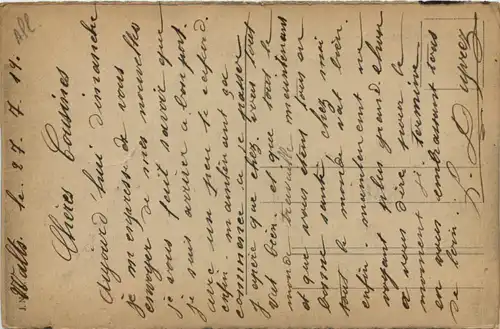 Wells le 27.7.19.
Chères Cousines
Aujourd'hui dimanche
je m'empresse de vous
envoyer de mes nouvelles
je vous fait savoir que
je suis arriver a bon port
avec un peu te
enfin maintenant ça
commence a se passer
j'espere que chez vous tout
vat bien et que tout le
monde travaille maintenant
et que vous etent tous en
bonne santé chez moi
tout le monde vat bien.
enfin maintenent ne
voyant plus grand chose
a vous dire pour le
moment je termine
en vous embrassant tous
de loin.
G. Duprez